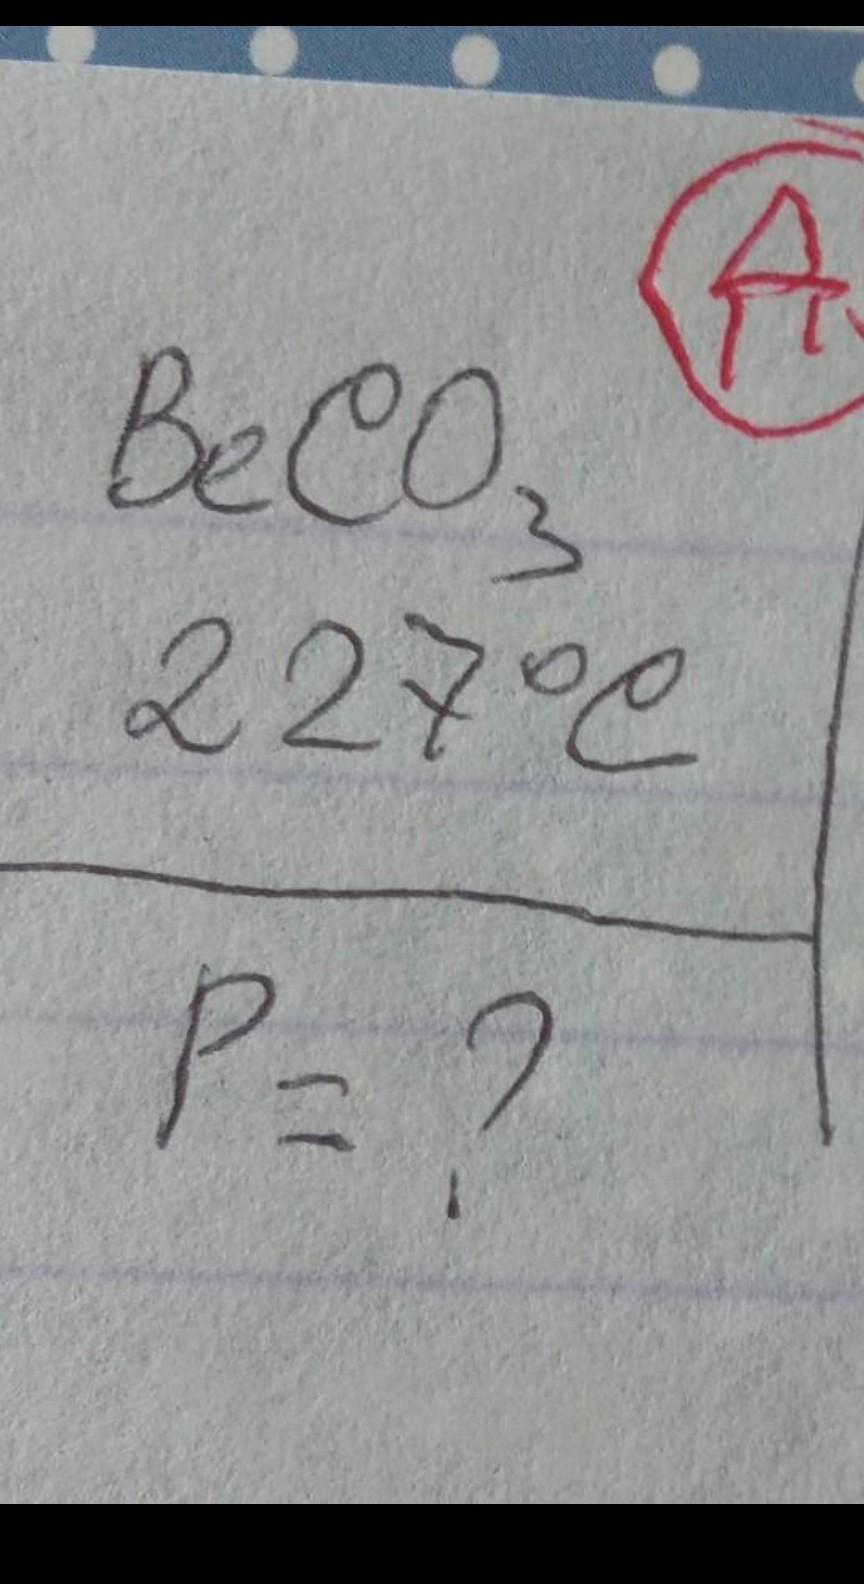 A
BeCO₃
227°C
P = ?